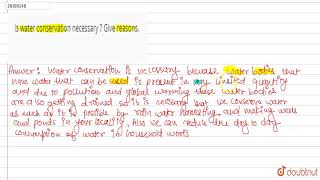 28390148
Is water conservation necessary ? Give reasons.
Answer: water conservation is necessary because water bodies that
have water that can be used is present in very limited quantity
and due to pollution and global warming these water bodies
are also getting drained. so it is necessary that we conserve water
as much as it is possible by rain water harvesting and making wells
and ponds in your locality, Also we can reduce the day to day
consumption of water in household works
doubtnut